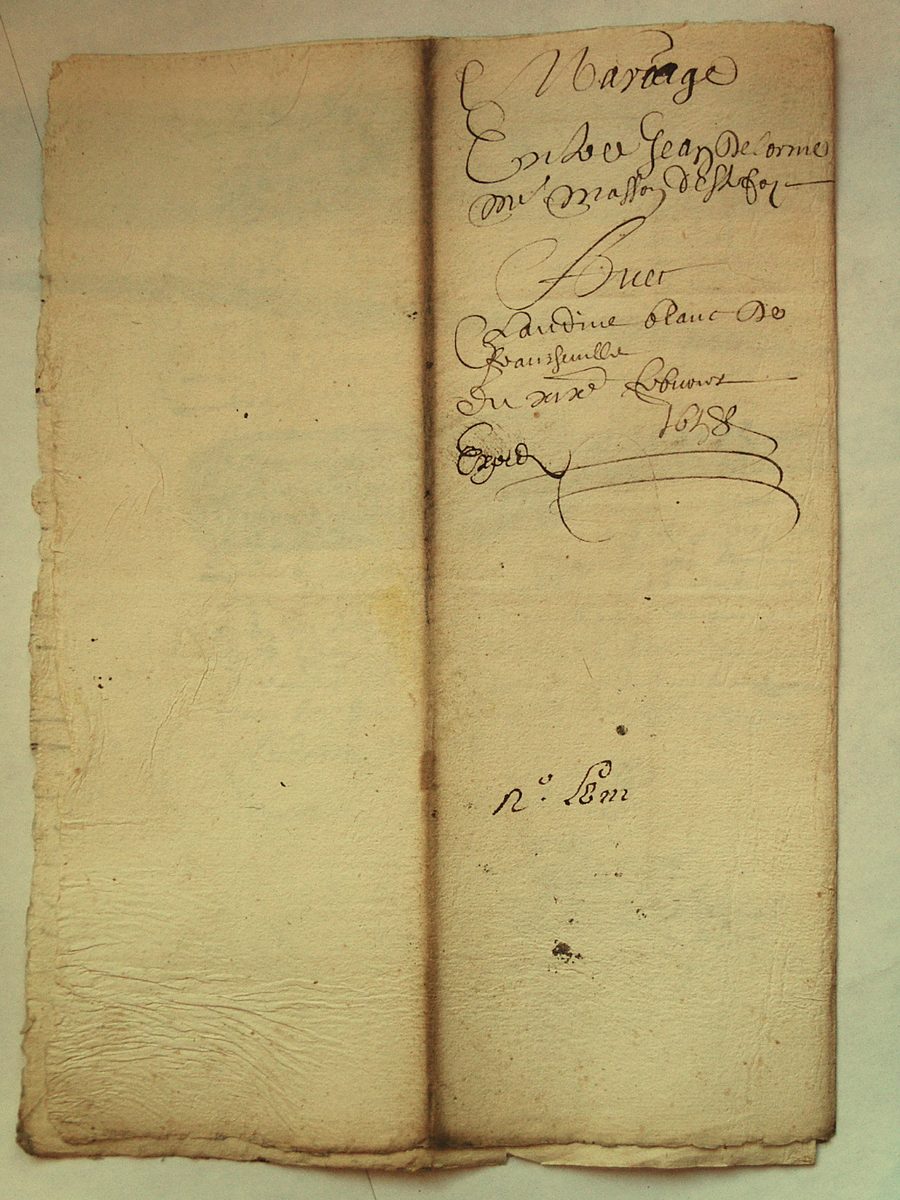 Mariage
Entre Jean Delorme
Me Masson de St foy
Avec
Claudine blanc de
francheville
Du xixe febvrier
1658
Exped
No.